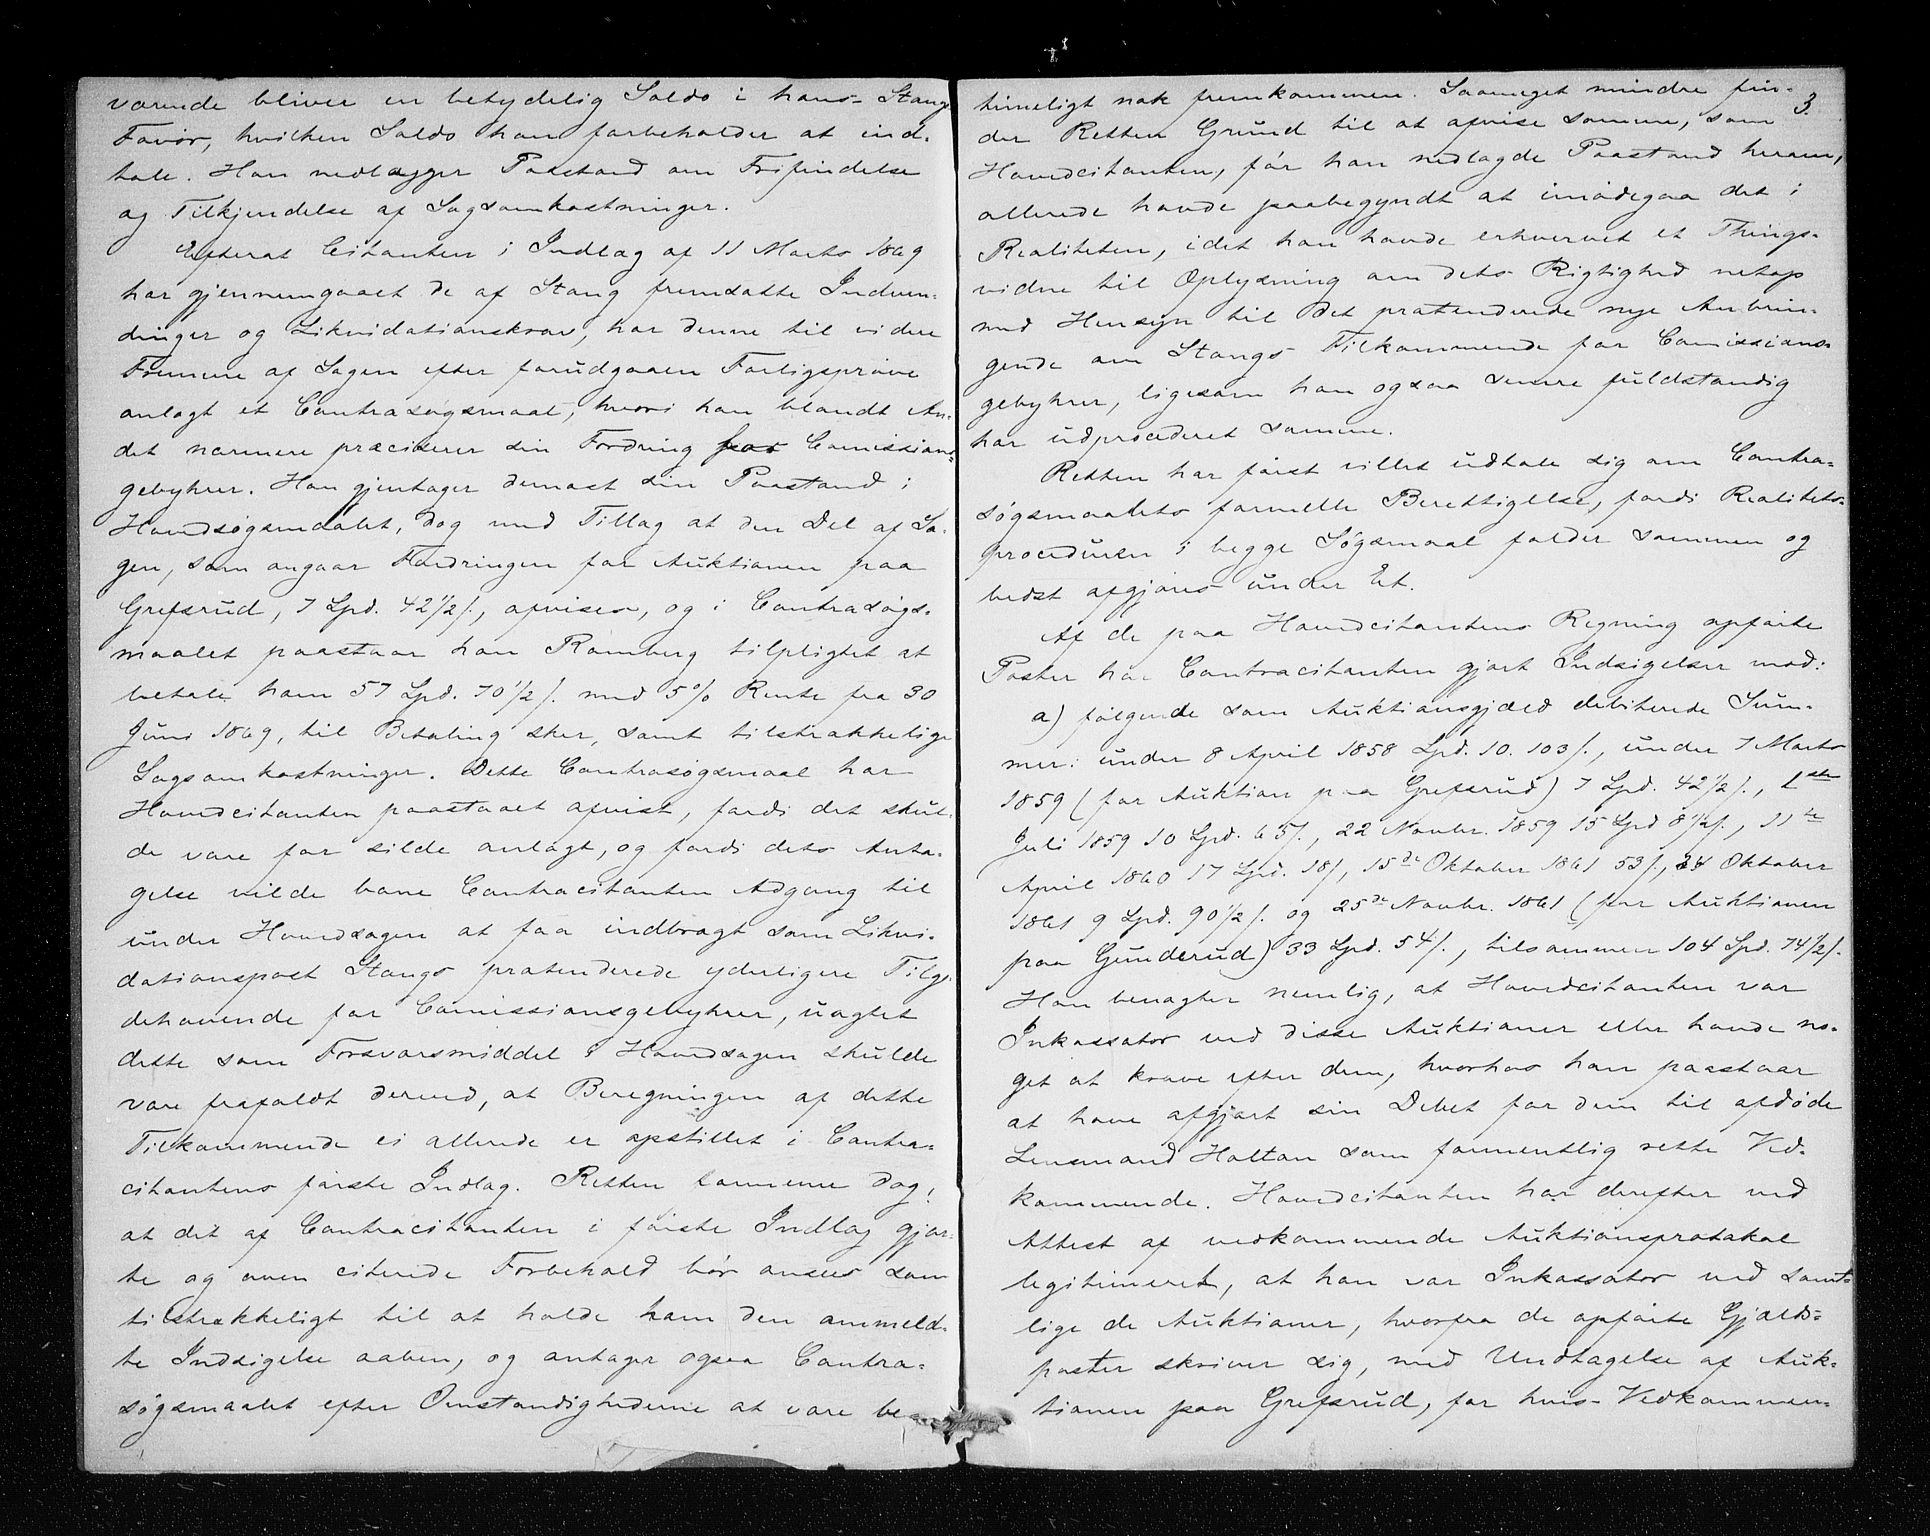 værende bliver en betydelig Saldo i hans – Stangs
Favør, hvilken Saldo han forbeholder at ind-
tale. Han nedlægger Paastand om Frifindelse
og Tilkjendelse af Sagsomkostninger.
Efterat Citanten i Indlæg af 11 Marts 1869
har gjennemgaaet de af Stang fremsatte Indven-
dinger og Likvidationskrav, har denne til videre
Fremme af Sagen efter forudgaaen Forligsprøve
anlagt et Contrasøgsmaal, hvori han blandt An-
det nærmere præciserer sin Fordring for Comissions-
gebyhrer. Han gjentager dernæst sin Paastand i
Hovedsøgsmaalet, dog med Tillæg at den Del af Sa-
gen, som angaar Fordringen for Auktionen paa
Grefsrud, 7 Spd. 42½ s., afvises, og i Contrasøgs-
maalet paastaar han Ramberg tilpligtet at
betale ham 57 Spd. 70½ s. med 5% Rente fra 30
Juni 1869, til Betaling sker, samt tilstrækkelige
Sagsomkostninger. Dette Contrasøgsmaal har
Hovedcitanten paastaaet afvist, fordi det skul-
de være for silde anlagt, og fordi dets Anta-
gelse vilde bane Contracitanten Adgang til
under Hovedsagen at faa indbragt som Likvi-
dationspost Stangs prætenderede yderligere Tilgo-
dehavende for Comissionsgebyhrer, uagtet
dette som Forsvarsmiddel i Hovedsagen skulde
være frafaldt derved, at Beregningen af dette
Tilkommende ei allerede er opstillet i Contra-
citantens første Indlæg. Retten formener dog,
at det af Contracitanten i første Indlæg gjor-
te og oven citerede Forbehold bør ansees som
tilstrækkeligt til at holde ham den anmeld-
te Indsigelse aaben, og antager ogsaa Contra-
søgsmaalet efter Omstændighederne at være be-
3.
timeligt nok fremkommen. Saameget mindre fin-
der Retten Grund til at afvise samme, som
Hovedcitanten, før han nedlagde Paastand herom,
allerede havde paabegyndt at imødegaa det i
Realiteten, idet han havde erhvervet et Things-
vidne til Oplysning om dets Rigtighed netop
med Hensyn til det prætenderede nye Anbrin-
gende om Stangs Tilkommende for Comissions-
gebyhrer, ligesom han ogsaa senere fuldstændig
har udprocederet samme.
Retten har først villet udtale sig om Contra-
søgsmaalets formelle Berettigelse, fordi Realitets-
proceduren i begge Søgsmaal falder sammen og
bedst afgjøres under Et.
Af de paa Hovedcitantens Regning opførte
Poster har Contracitanten gjort Indsigelser mod:
a) følgende som Auktionsgjæld debiterede Sum-
mer: under 8 April 1858 Spd. 10. 103 s., under 7 Marts
1859 (for Auktion paa Grefsrud) 7 Spd. 42½ s., 1ste
Juli 1859 10 Spd. 65 s., 22 Novbr. 1859 15 Spd 8½ s., 11te
April 1860 17 Spd. 18 s, 15de Oktober 1861 53 s., 24 Oktober
1861 9 Spd. 90½ s. og 25de Novbr. 1861 (for Auktionen
paa Gunderud) 33 Spd. 54 s., tilsammen 104 Spd. 74½ s.
Han benægter nemlig, at Hovedcitanten var
Inkassator ved disse Auktioner eller havde no-
get at kræve efter dem, hvorhos han paastaar
at have afgjort sin Debet for dem til afdøde
Lensmand Holtan som formentlig rette Ved-
kommende. Hovedcitanten har derefter ved
Attest af vedkommende Auktionsprotokol
legitimeret, at han var Inkassator ved samt-
lige de Auktioner, hvorfra de opførte Gjælds-
poster skriver sig, med Undtagelse af Auk-
tionen paa Grefsrud, for hvis Vedkommen-